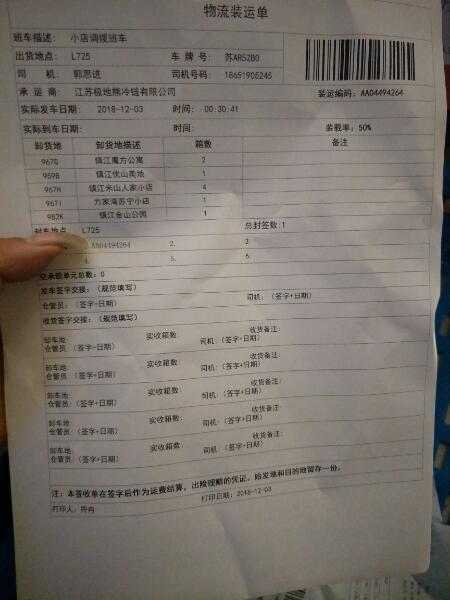 物流装运单
班车描述： 小店调拨班车
出货地点： L725 车 牌 号： 苏AR52B0
司 机： 郭思进 司机号码： 18651905245
承 运 商： 江苏极地熊冷链有限公司 装运编码：AA04494264
实际发车日期： 2018-12-03 时间： 00:30:41
实际到车日期： 时间： 装载率：50%
卸货地 卸货地描述 箱数 备注
967G 镇江魔方公寓 2
959B 镇江优山美地 1
967H 镇江米山人家小店 4
967I 方家湾苏宁小店 1
982K 镇江金山公园 1
封车地点： L725 总封签数：1
AA04494264 2. 3
4. 5. 6.
空承载单元总数：0
发车签字交接：（规范填写）
仓管员：（签字+日期） 司机：（签字+日期）
收货签字交接：（规范填写）
卸车地： 实收箱数： 收货备注：
仓管员：（签字+日期） 司机：（签字+日期）
卸车地： 实收箱数： 收货备注：
仓管员：（签字+日期） 司机：（签字+日期）
卸车地： 实收箱数： 收货备注：
仓管员：（签字+日期） 司机：（签字+日期）
卸车地： 实收箱数： 收货备注：
仓管员：（签字+日期） 司机：（签字+日期）
卸车地： 实收箱数： 收货备注：
仓管员：（签字+日期） 司机：（签字+日期）
注：本签收单在签字后作为运费结算，出险理赔的凭证，始发地和目的地留存一份。
打印人：符冉 打印日期：2018-12-03